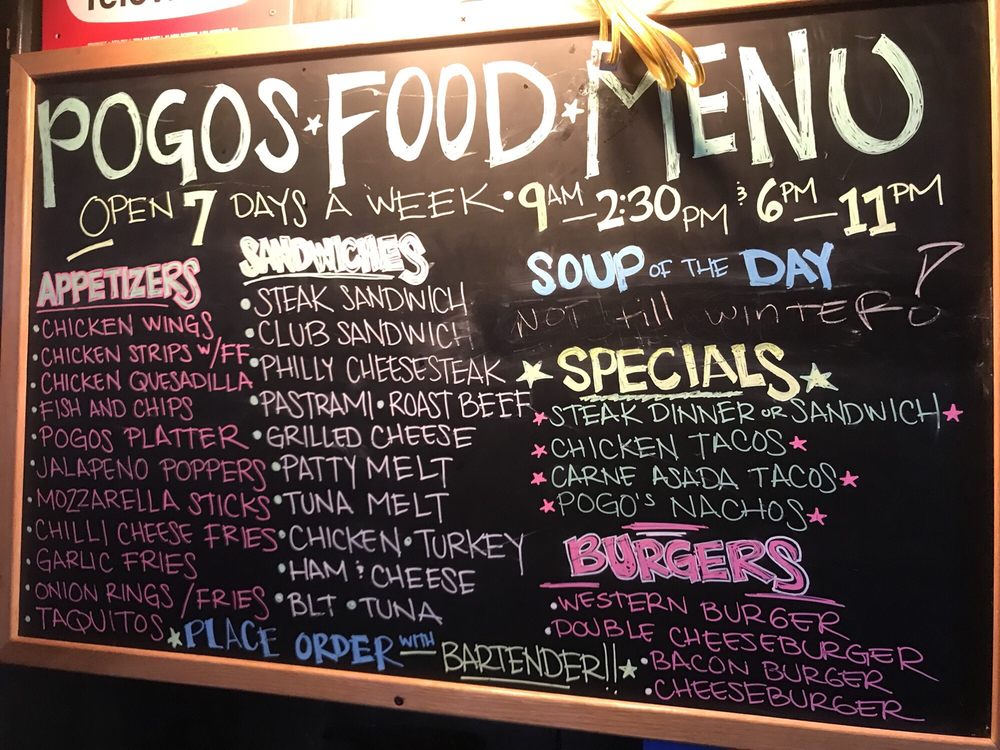 POGOS FOOD MENU
OPEN 7 DAYS A WEEK • 9AM - 2:30 PM & 6PM - 11PM
APPETIZERS
• CHICKEN WINGS
• CHICKEN STRIPS W/FF
• CHICKEN QUESADILLA
• FISH AND CHIPS
• POGOS PLATTER
• JALAPENO POPPERS
• MOZZARELLA STICKS
• CHILLI CHEESE FRIES
• GARLIC FRIES
• ONION RINGS / FRIES
• TAQUITOS
SANDWICHES
• STEAK SANDWICH
• CLUB SANDWICH
• PHILLY CHEESESTEAK
• PASTRAMI • ROAST BEEF
• GRILLED CHEESE
• PATTY MELT
• TUNA MELT
• CHICKEN • TURKEY
• HAM & CHEESE
• BLT • TUNA
SOUP OF THE DAY
NOT till WINTER
SPECIALS
STEAK DINNER OR SANDWICH
CHICKEN TACOS
CARNE ASADA TACOS
POGO'S NACHOS
BURGERS
• WESTERN BURGER
• DOUBLE CHEESEBURGER
• BACON BURGER
• CHEESEBURGER
PLACE ORDER WITH BARTENDER!!